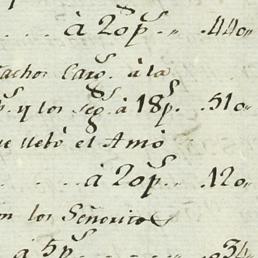 ... à 20 p.s .. .440,,
achos Cargs. à la
p.s y los segs. à 18 p.s .510,,
e llebó el Amo
. . . . à 20 p.s .. .120,,
n los Señoritos
à 5 p.s .. 34